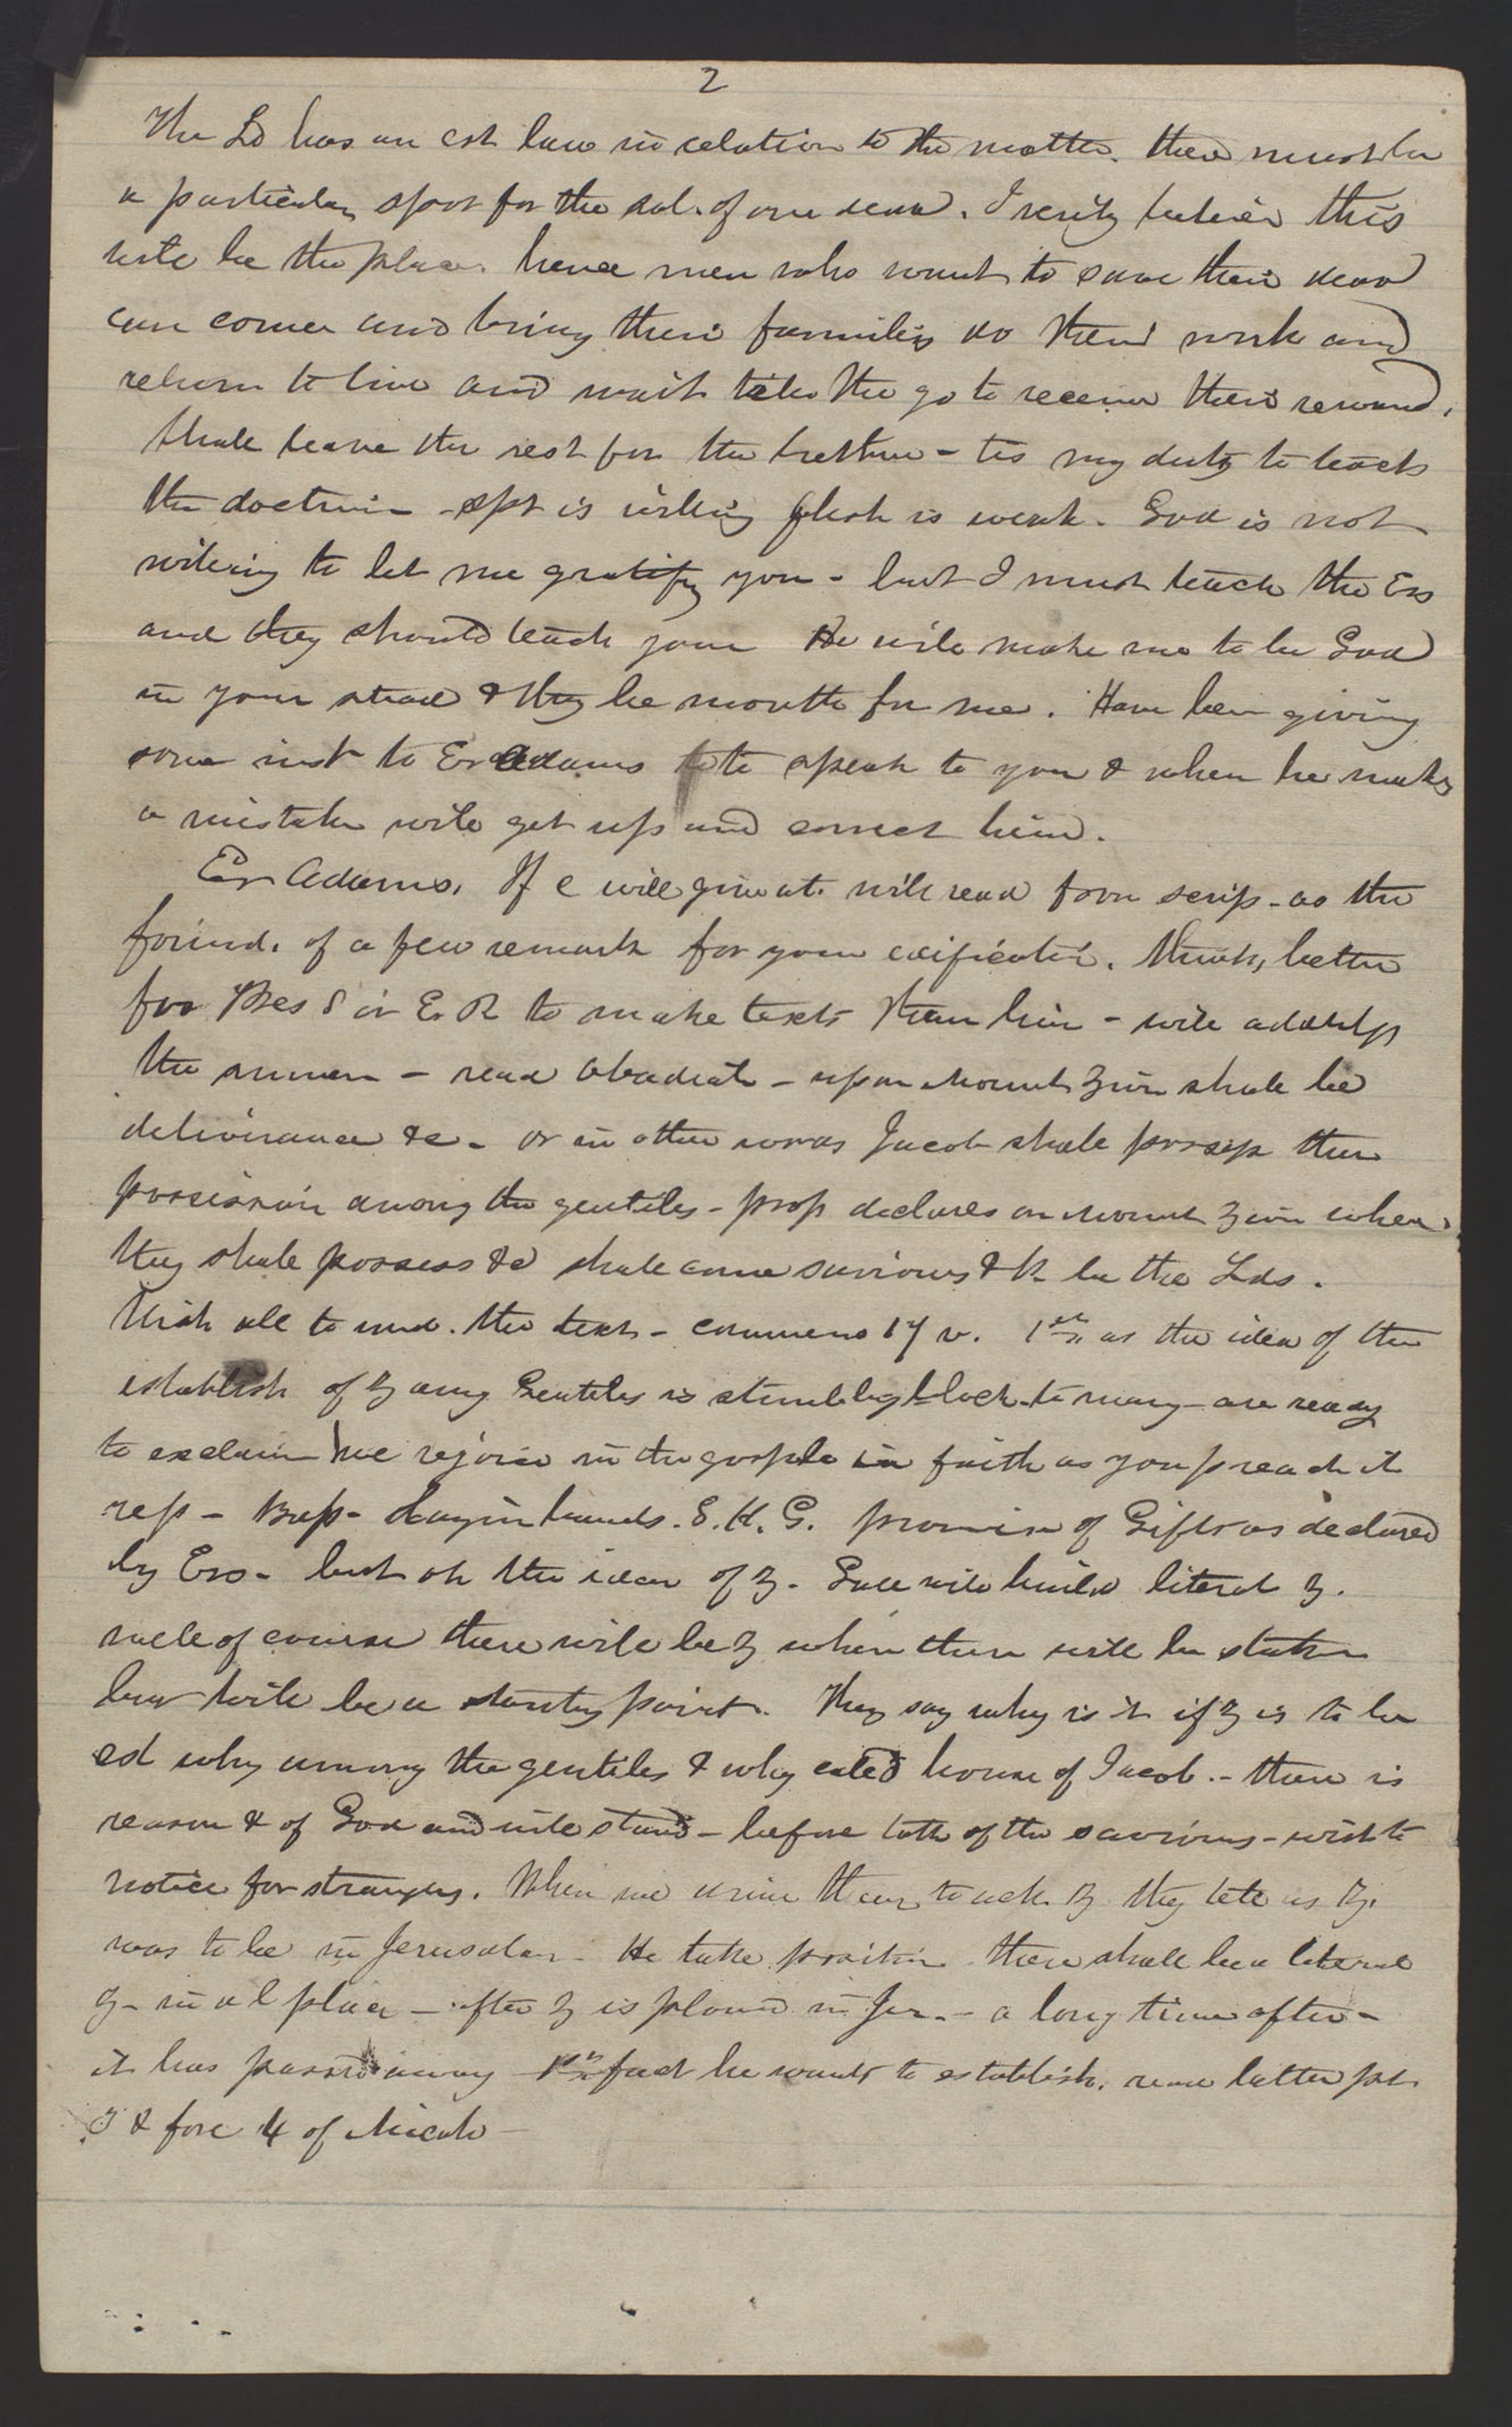 2
The Ld has an est law in relation to the matter. there must be
a particular spot for the sal. of our dead. I verily believe this
will be the place. hence men who want to save their dead
can come and bring their families do their work and
return to live and wait till the go to receive their reward.
shall leave the rest for the brethren - tis my duty to teach
the doctrin - spt is willing flesh is weak. God is not
willing to let me gratify you - but I must teach the Ers
and they should teach you He will make me to be God
in your stead & they be mouth for me. Have been giving
some inst to Er Adams to to speak to you & when he makes
a mistake will get up and correct him.
Er Adams. If e will give at. will read from scrip - as the
found. of a few remark for your edificatin. thinks better
for Pres S or E. R to make texts than him - will address
the - read Obadiah - upon Mount Zion shall be
deliverance &c - or in other words Jacob shall possess their
possession among the gentiles - prop declares on Mount Zion when
they shall possess &c shall come saviours & K be the Lds.
Wish all to und. the text - commenc 17 v. 1st as the idea of the
establish of Z among Gentiles is stumbling block to many - are ready
to exclaim we rejoice in the gospel in faith as you preach it
rep - Bap - laying hands. G. H. G. promise of Gifts as declared
by Ers - but oh the idea of Z - God will build literal Z.
well of course there will be Z when there will be stakes
but will be a starting point. They say why is it if Z is to be
est why among the gentiles & why called house of Jacob. - there is
reason & of God and will stand - before both of the saviours - wish to
notice for strangers. When we them to ack Z they tell us Z.
was to be in Jerusalem - He take position there shall be a literal
Z - in a l place - after Z is plowed in Jer. - a long time after -
it has passed away 1st fact he wants to establish. read latter pt
3 & fore 4 of Micah